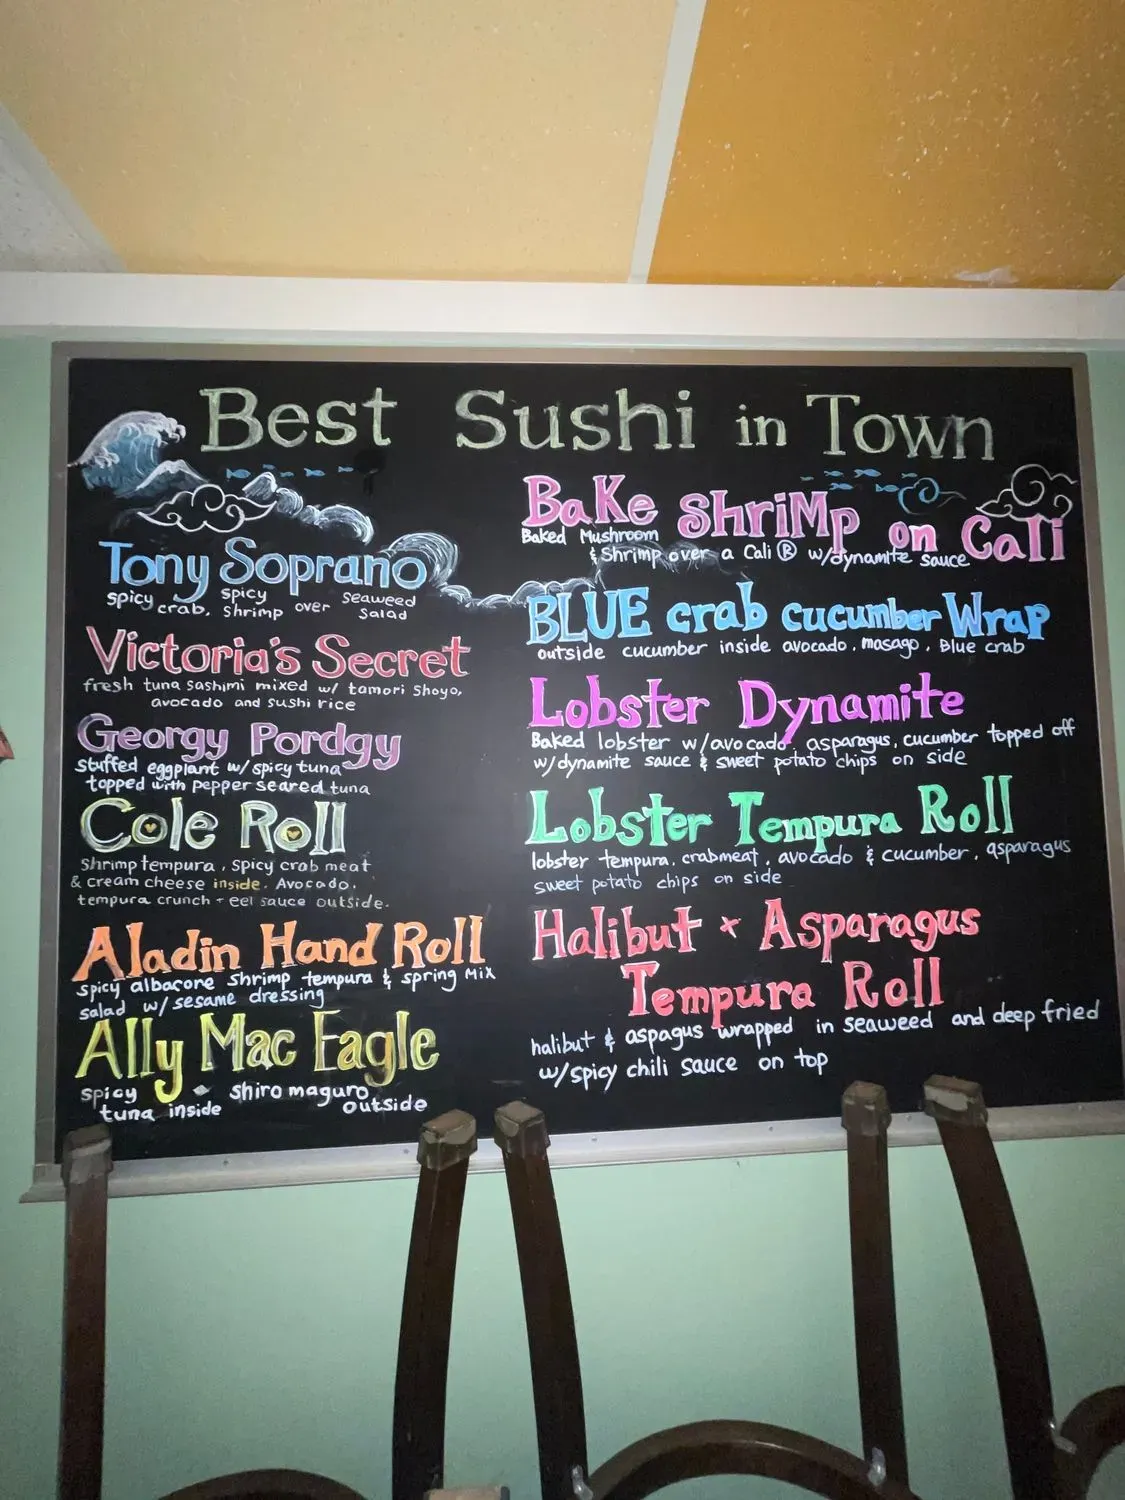 Best Sushi in Town
Tony Soprano
spicy crab, spicy shrimp over seaweed salad
Victoria's Secret
fresh tuna sashimi mixed w/ tamori shoyo,
avocado and sushi rice
Georgy Pordgy
stuffed eggplant w/ spicy tuna
topped with pepper seared tuna
Cole Roll
shrimp tempura, spicy crab meat
& cream cheese inside. Avocado.
tempura crunch + eel sauce outside.
Aladin Hand Roll
spicy albacore shrimp tempura & spring mix
salad w/ sesame dressing
Ally Mac Eagle
spicy tuna inside shiro maguro outside
Bake Shrimp on Cali
Baked Mushroom
& Shrimp over a Cali Ⓡ w/dynamite sauce
BLUE crab cucumber Wrap
outside cucumber inside avocado, masago, Blue crab
Lobster Dynamite
Baked lobster w/avocado, asparagus, cucumber topped off
w/dynamite sauce & sweet potato chips on side
Lobster Tempura Roll
lobster tempura, crabmeat, avocado & cucumber, asparagus
sweet potato chips on side
Halibut x Asparagus
Tempura Roll
halibut & aspagus wrapped in seaweed and deep fried
w/spicy chili sauce on top